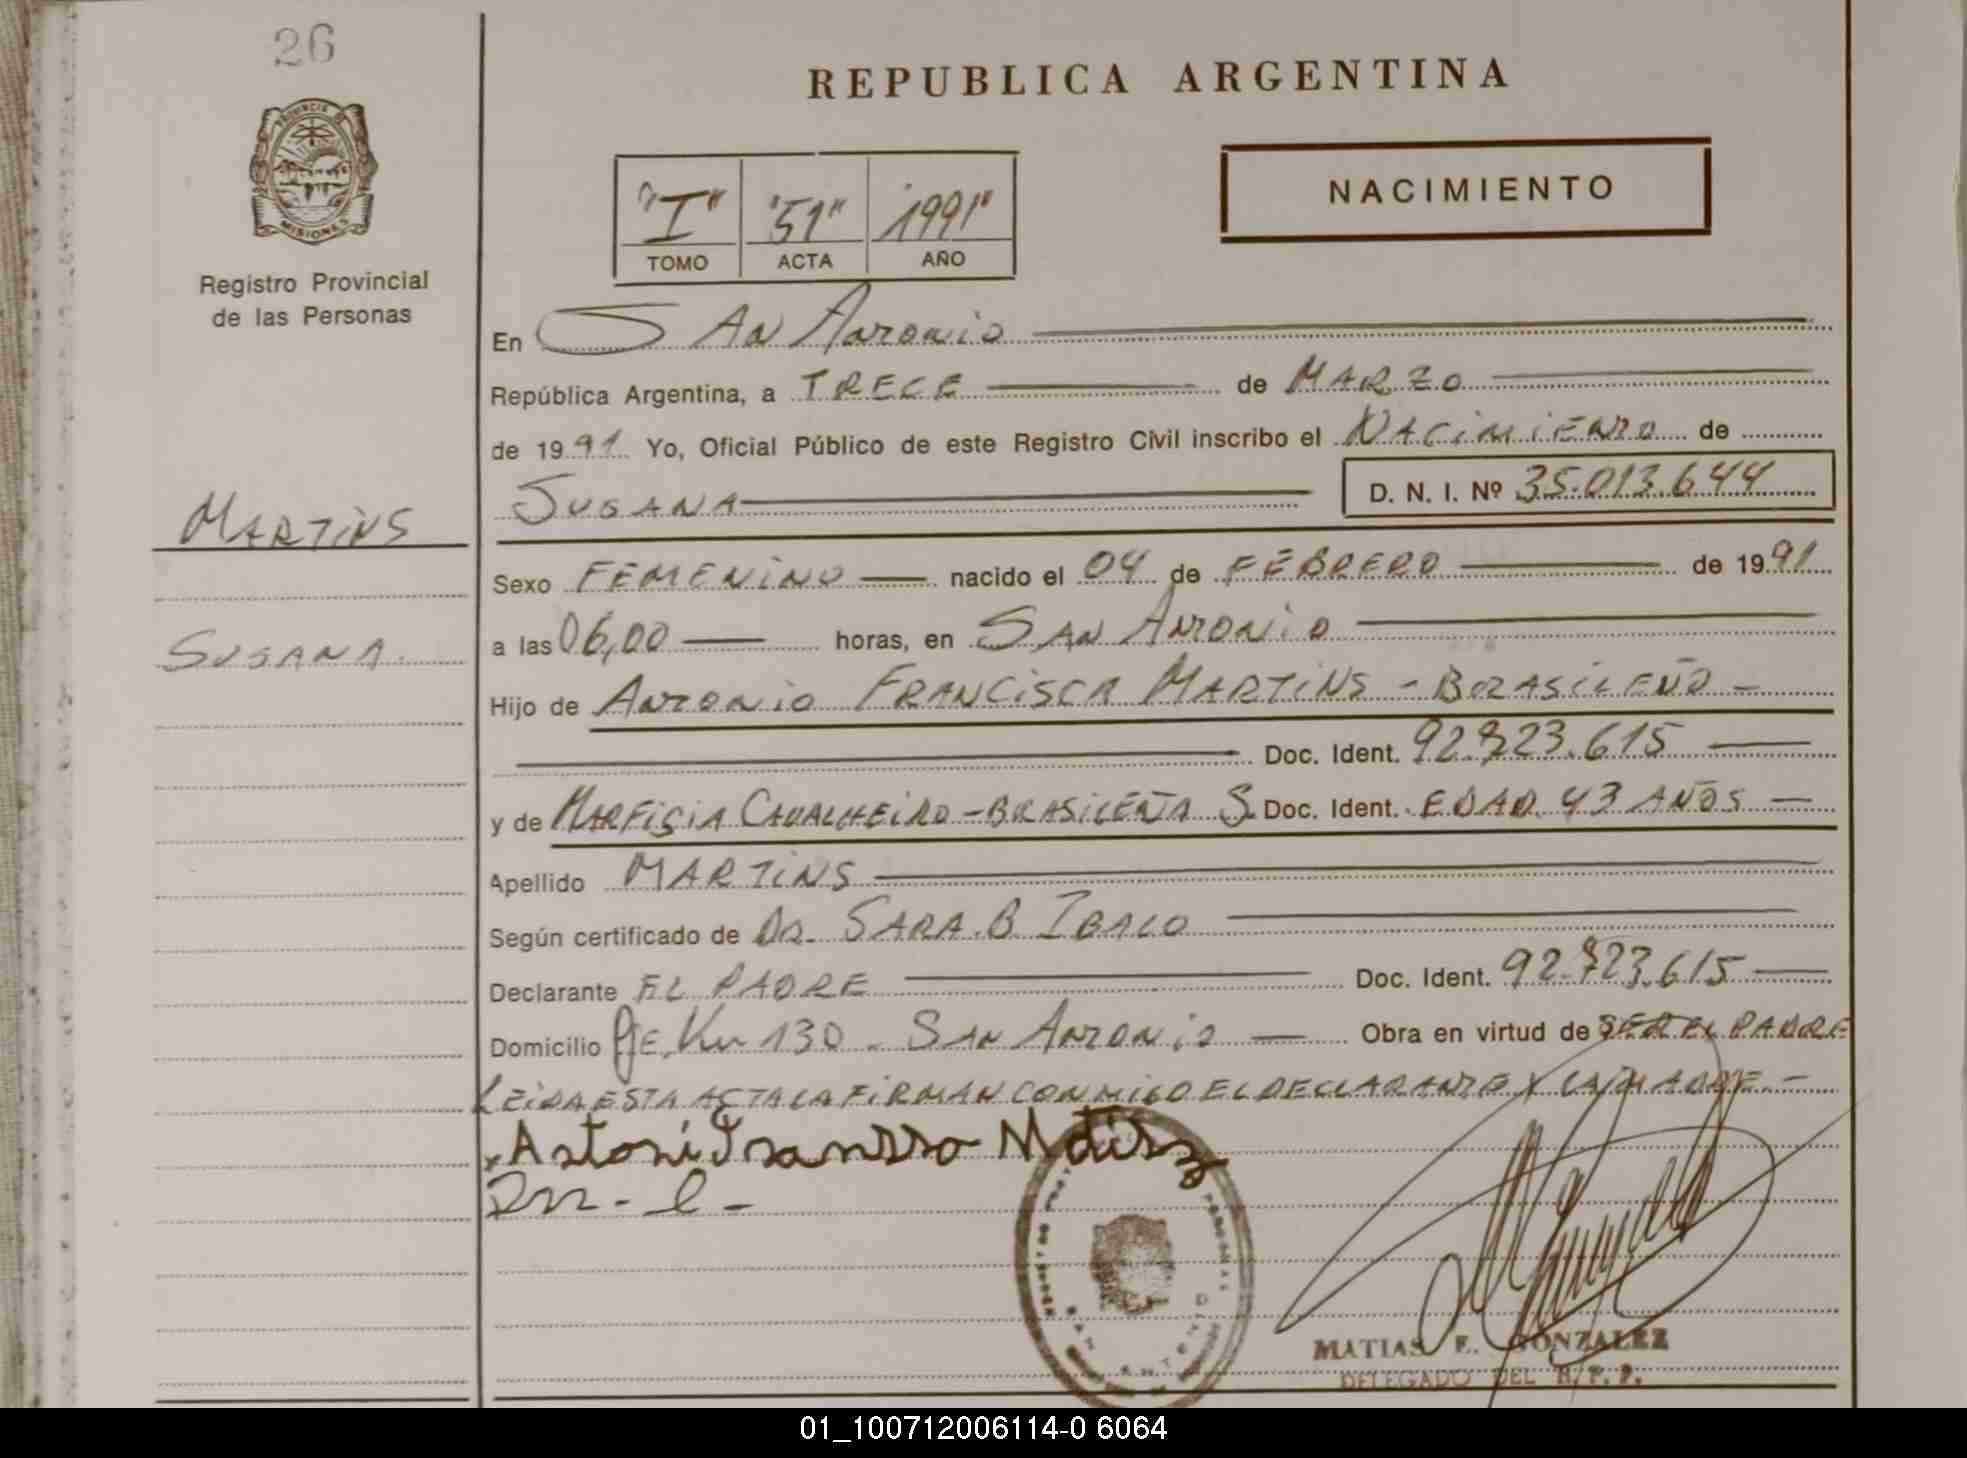 26
REPUBLICA ARGENTINA
PROVINCIA DE MISIONES
"I" "51" "1991"
TOMO ACTA AÑO
NACIMIENTO
Registro Provincial
de las Personas
En San Antonio
República Argentina, a TRECE de MARZO
de 1991 Yo, Oficial Público de este Registro Civil inscribo el NACIMIENTO de
SUSANA D. N. I. Nº 35.013.644
MARTINS
Sexo FEMENINO nacido el 04 de FEBRERO de 1991
SUSANA
a las 06,00 horas, en SAN ANTONIO
Hijo de ANTONIO FRANCISCA MARTINS - BRASILEÑO -
Doc. Ident. 92.723.615
y de MARFISIA CAVALHEIRO - BRASILEÑA S. Doc. Ident. EDAD 43 AÑOS
Apellido MARTINS
Según certificado de DR. SARA. B. IBALO
Declarante EL PADRE Doc. Ident. 92.723.615
Domicilio Pje. Km 130 - SAN ANTONIO Obra en virtud de SER EL PADRE
LEIDA ESTA ACTA LA FIRMAN CONMIGO EL DECLARANTE Y LA MADRE. -
MATIAS F. GONZALEZ
DELEGADO DEL R. P. P.
01_100712006114-0 6064